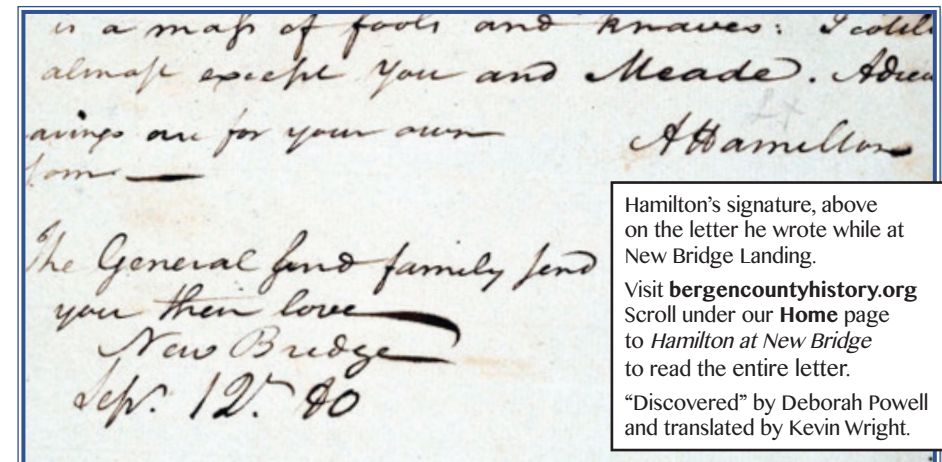 is a mass of fools and knaves: I could
almost except you and Meade. Adieu
avings are for your own
som —
A Hamilton
The General and family send
you their love
New Bridge
Sepr. 12. 80
Hamilton's signature, above
on the letter he wrote while at
New Bridge Landing.
Visit bergencountyhistory.org
Scroll under our Home page
to Hamilton at New Bridge
to read the entire letter.
“Discovered” by Deborah Powell
and translated by Kevin Wright.